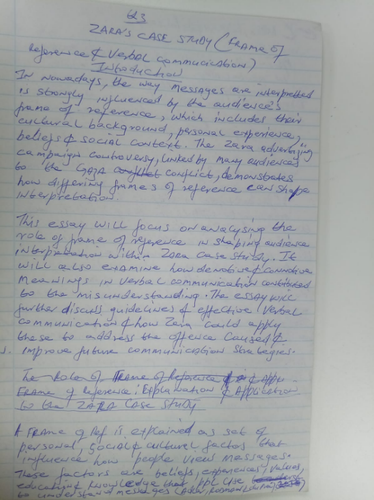 ZARA'S CASE STUDY (FRAME OF
Reference & Verbal communication)
Introduction
In nowadays, the way messages are interpreted
is strongly influenced by the audience's
frame of reference, which includes their
cultural background, personal experience,
beliefs & social context. The Zara advertising
campaign controversy, linked by many audiences
to the GAZA conflict, demonstrates
how differing frames of reference can shape
interpretation.
This essay will focus on analysing the
role of frame of reference in shaping audience
interpretation within Zara case study. It
will also examine how denotive & connotive
meanings in verbal communication contributed
to the misunderstanding. The essay will
further discuss guidelines of effective verbal
communication & how Zara could apply
these to address the offence caused &
improve future communication strategies.
The Role of Frame of Reference
Frame of reference: Explanation & Application
to the ZARA Case Study
A Frame of Ref is explained as set of
personal, social & cultural factors that
influence how people view messages.
These factors are beliefs, experiences, values,
education, knowledge that ppl use
to understand messages